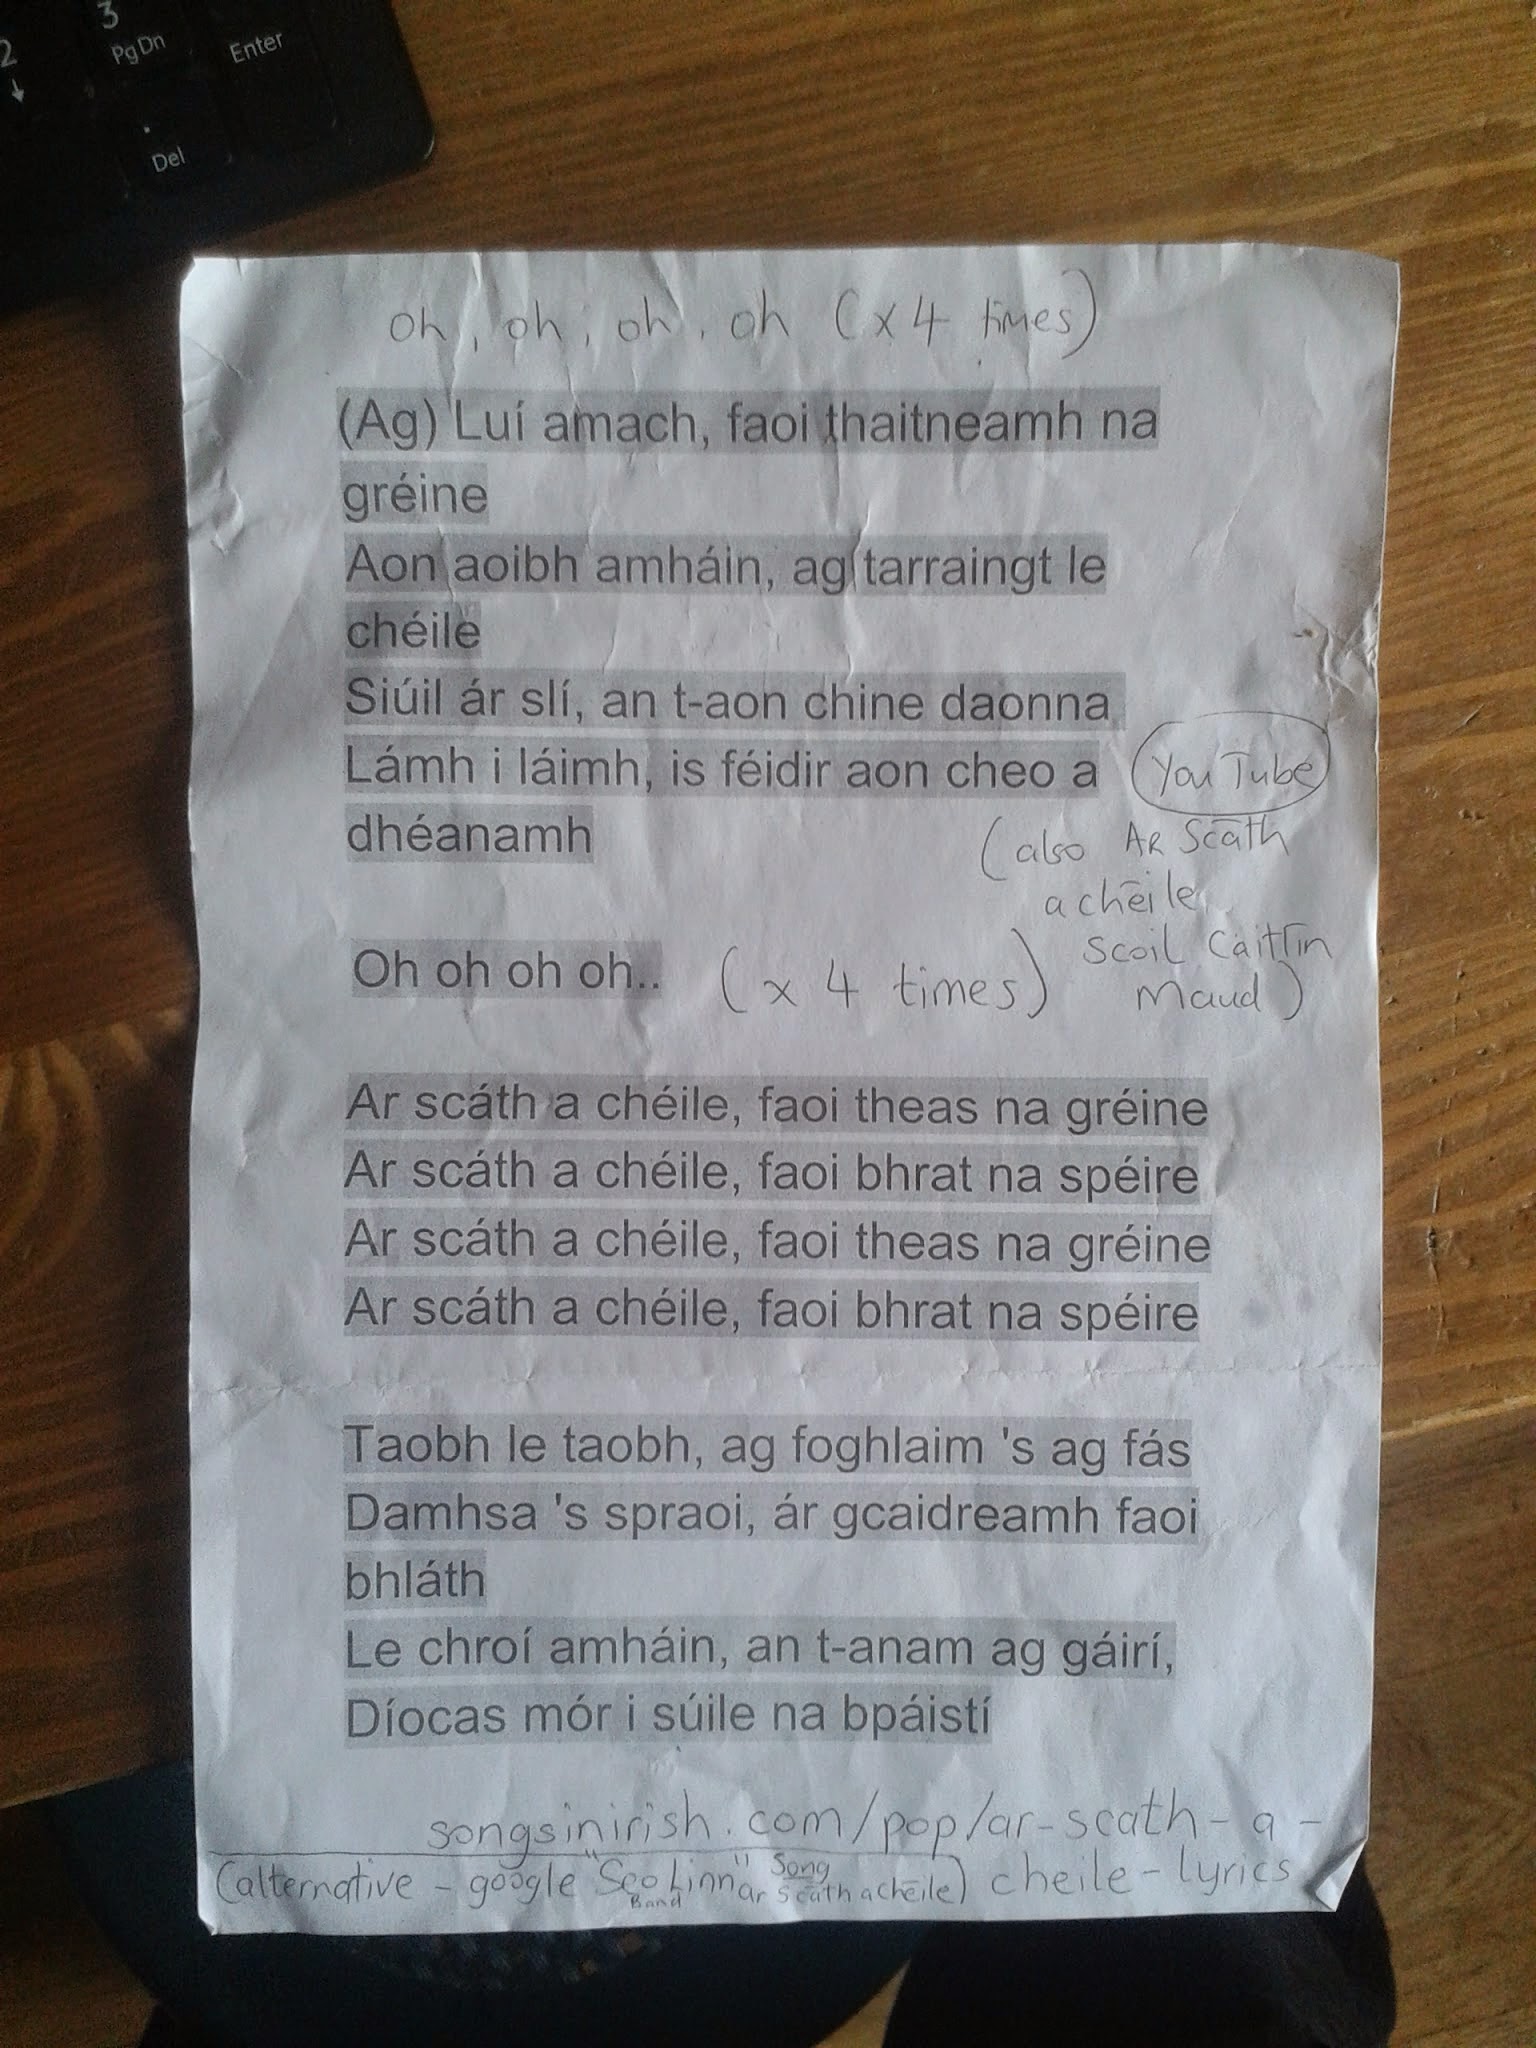 3
PgDn
2
↓
Enter
.
Del
oh, oh, oh, oh (x 4 times)
(Ag) Luí amach, faoi thaitneamh na
gréine
Aon aoibh amháin, ag tarraingt le
chéile
Siúil ár slí, an t-aon chine daonna
Lámh i láimh, is féidir aon cheo a
dhéanamh
YouTube
(also Ar Scáth
a chéile,
Scoil Caitlín
Maud)
Oh oh oh oh.. (x 4 times)
Ar scáth a chéile, faoi theas na gréine
Ar scáth a chéile, faoi bhrat na spéire
Ar scáth a chéile, faoi theas na gréine
Ar scáth a chéile, faoi bhrat na spéire
Taobh le taobh, ag foghlaim 's ag fás
Damhsa 's spraoi, ár gcaidreamh faoi
bhláth
Le chroí amháin, an t-anam ag gáirí,
Díocas mór i súile na bpáistí
songsinirish.com/pop/ar-scath-a-
cheile-lyrics
(alternative - google "Seo Linn" Song
Band ar scáth a chéile)